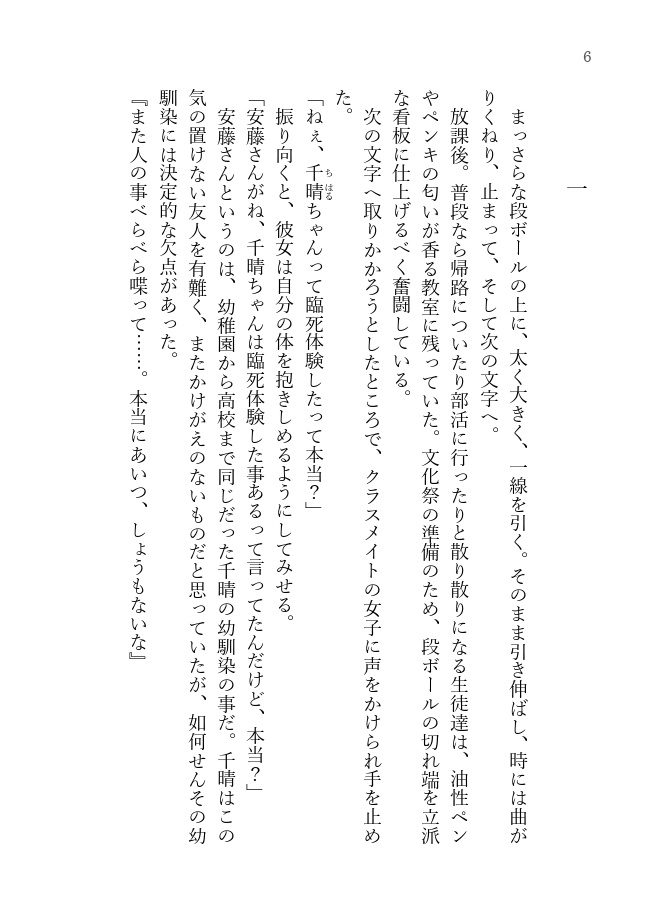 6
一
まっさらな段ボールの上に、太く大きく、一線を引く。そのまま引き伸ばし、時には曲が
りくねり、止まって、そして次の文字へ。
放課後。普段なら帰路についたり部活に行ったりと散り散りになる生徒達は、油性ペン
やペンキの匂いが香る教室に残っていた。文化祭の準備のため、段ボールの切れ端を立派
な看板に仕上げるべく奮闘している。
次の文字へ取りかかろうとしたところで、クラスメイトの女子に声をかけられ手を止め
た。
「ねぇ、千晴ちゃんって臨死体験したって本当？」
ちはる
振り向くと、彼女は自分の体を抱きしめるようにしてみせる。
「安藤さんがね、千晴ちゃんは臨死体験した事あるって言ってたんだけど、本当？」
安藤さんというのは、幼稚園から高校まで同じだった千晴の幼馴染の事だ。千晴はこの
気の置けない友人を有難く、またかけがえのないものだと思っていたが、如何せんその幼
馴染には決定的な欠点があった。
『また人の事べらべら喋って……。本当にあいつ、しょうもないな』